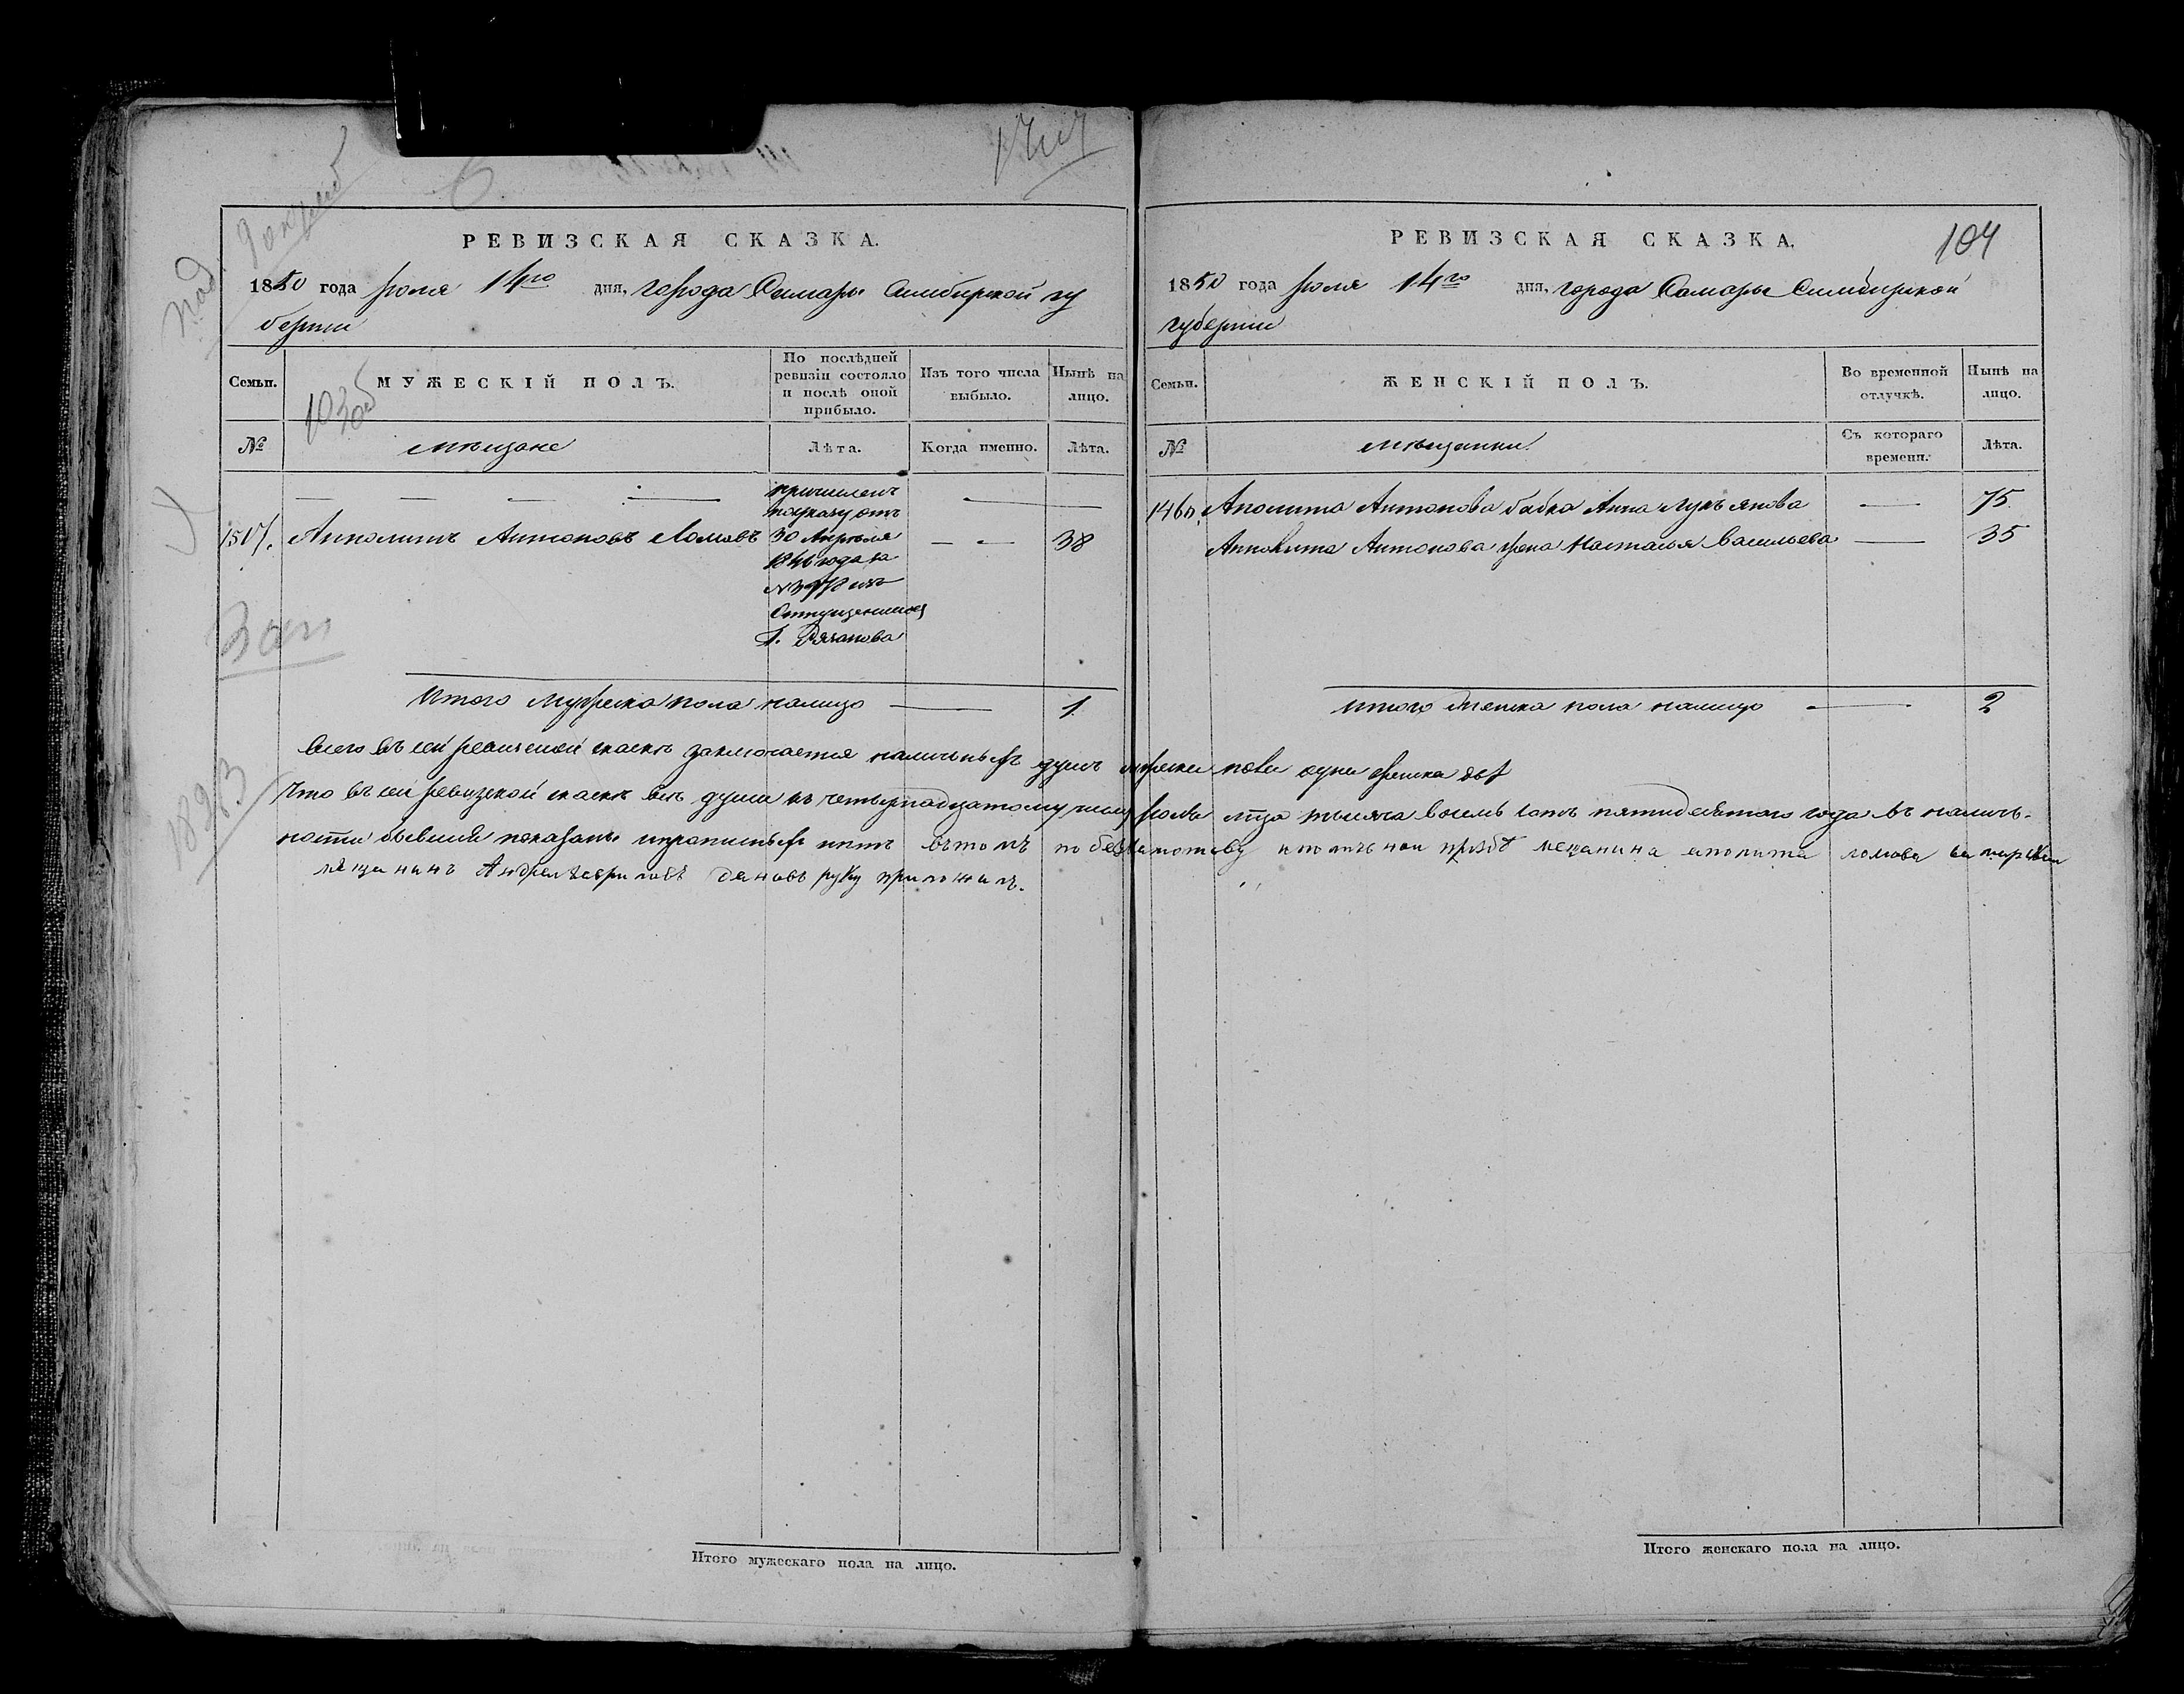 104
РЕВИЗСКАЯ СКАЗКА.
1850 года Июля 14го дня, города Самары Симбирской гу
бернии
Семьи.
МУЖЕСКІЙ ПОЛЪ.
По послѣдней ревизіи состояло и послѣ оной прибыло.
Изъ того числа выбыло.
Нынѣ на лицо.
№
мѣщане
Лѣта.
Когда именно.
Лѣта.
причисленъ
поуказу отъ
1517. Апполитъ Антоновъ Ломовъ 30 Апреля — „ — 38
1846 года за
№
Отпущенныхъ
Г. Рязанова
Итого Мужеска пола налицо — 1.
Итого мужескаго пола на лицо.
РЕВИЗСКАЯ СКАЗКА.
1850 года Июля 14го дня, города Самары Симбирской
губернии
Семьи.
ЖЕНСКІЙ ПОЛЪ.
Во временной отлучкѣ.
Нынѣ на лицо.
№
мѣщанки
Съ котораго времени.
Лѣта.
1460. Аполита Антонова бабка Анна Лукъянова — 75.
Апполита Антонова жена Настасья Васильева — 35
Итого Женска пола налицо — 2
Всего въ сей ревизской сказкѣ заключается наличныхъ душъ мужска пола одна женска двѣ
Что въ сей ревизской сказкѣ всѣ души къ четырнадцатому числу Июля мца тысяча восемь сотъ пятидесятаго года въ налич-
ности бывшия показаны ипрописныхъ нѣтъ вътомъ по мещанина аполита ломова
мѣщанинъ Андрей Гавриловъ руку приложилъ.
Итого женскаго пола на лицо.